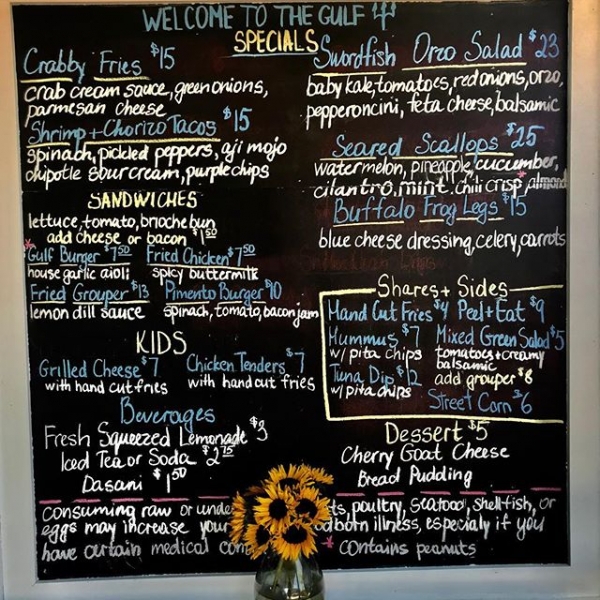 WELCOME TO THE GULF
SPECIALS
Crabby Fries $15
crab cream sauce, green onions,
parmesan cheese
Shrimp + Chorizo Tacos $15
spinach, pickled peppers, aji mojo
chipotle sour cream, purple chips
SANDWICHES
lettuce, tomato, brioche bun
add cheese or bacon $1.50
*Gulf Burger $7.50 Fried Chicken $7.50
house garlic aioli spicy buttermilk
Fried Grouper $13 Pimento Burger $10
lemon dill sauce spinach, tomato, bacon jam
KIDS
Grilled Cheese $7 Chicken Tenders $7
with hand cut fries with hand cut fries
Beverages
Fresh Squeezed Lemonade $3
Iced Tea or Soda $2.75
Dasani $1.50
Swordfish Orzo Salad $23
baby kale, tomatoes, red onions, orzo,
pepperoncini, feta cheese, balsamic
Seared Scallops $25
watermelon, pineapple, cucumber,
cilantro, mint, chili crisp*, almond
Buffalo Frog Legs $15
blue cheese dressing, celery, carrots
Shares + Sides
Hand Cut Fries $4 Peel + Eat $9
Hummus $7 Mixed Green Salad $5
w/ pita chips tomatoes + creamy
balsamic
Tuna Dip $12 add grouper $8
w/ pita chips
Street Corn $6
Dessert $5
Cherry Goat Cheese
Bread Pudding
consuming raw or unde ts, poultry, seafood, shellfish, or
eggs may increase your odborn illness, especially if you
have certain medical con * contains peanuts